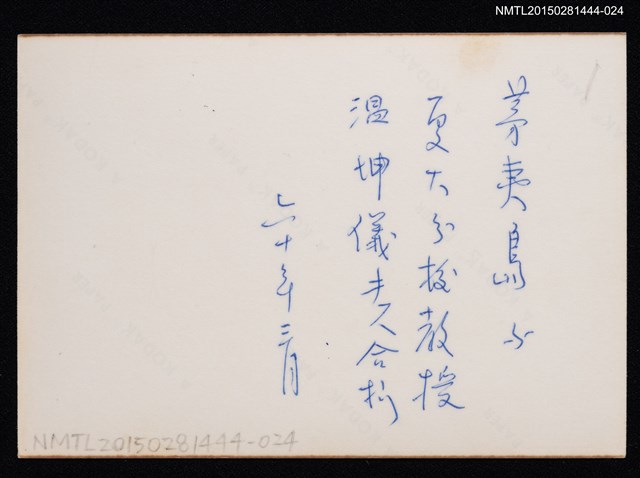 NMTL20150281444-024
茅夷島与
夏大分校教授
温坤儀夫人合拍
六十年三月
NMTL20150281444-024